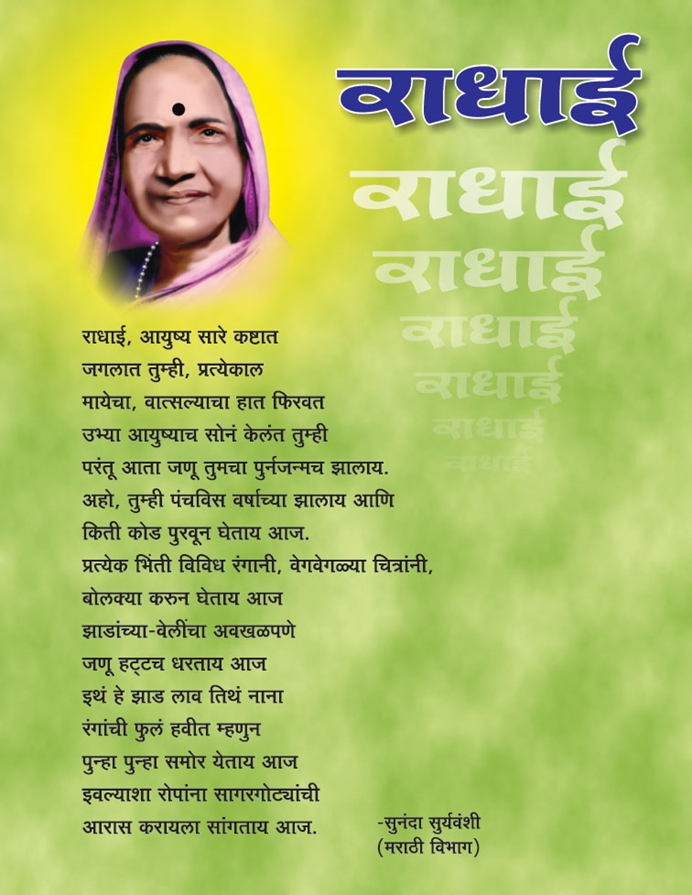 राधाई
राधाई
राधाई
राधाई
राधाई
राधाई
राधाई
राधाई, आयुष्य सारे कष्टात
जगलात तुम्ही, प्रत्येकाल
मायेचा, वात्सल्याचा हात फिरवत
उभ्या आयुष्याच सोनं केलंत तुम्ही
परंतू आता जणू तुमचा पुर्नजन्मच झालाय.
अहो, तुम्ही पंचविस वर्षाच्या झालाय आणि
किती कोड पुरवून घेताय आज.
प्रत्येक भिंती विविध रंगानी, वेगवेगळ्या चित्रांनी,
बोलक्या करुन घेताय आज
झाडांच्या-वेलींचा अवखळपणे
जणू हट्टच धरताय आज
इथं हे झाड लाव तिथं नाना
रंगांची फुलं हवीत म्हणुन
पुन्हा पुन्हा समोर येताय आज
इवल्याशा रोपांना सागरगोट्यांची
आरास करायला सांगताय आज.
-सुनंदा सुर्यवंशी
(मराठी विभाग)